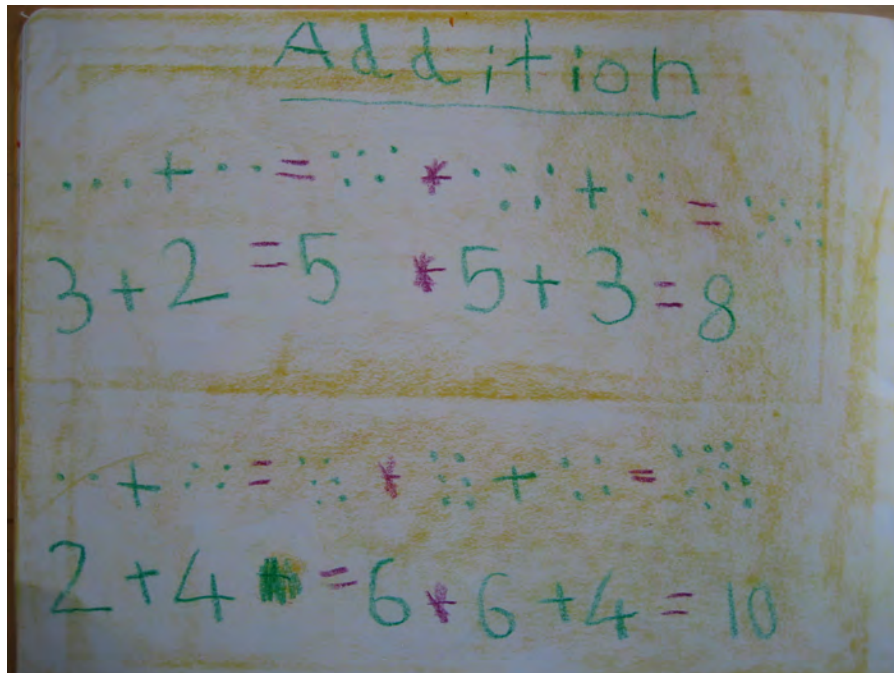 Addition
3 + 2 = 5 * 5 + 3 = 8
2 + 4 = 6 * 6 + 4 = 10